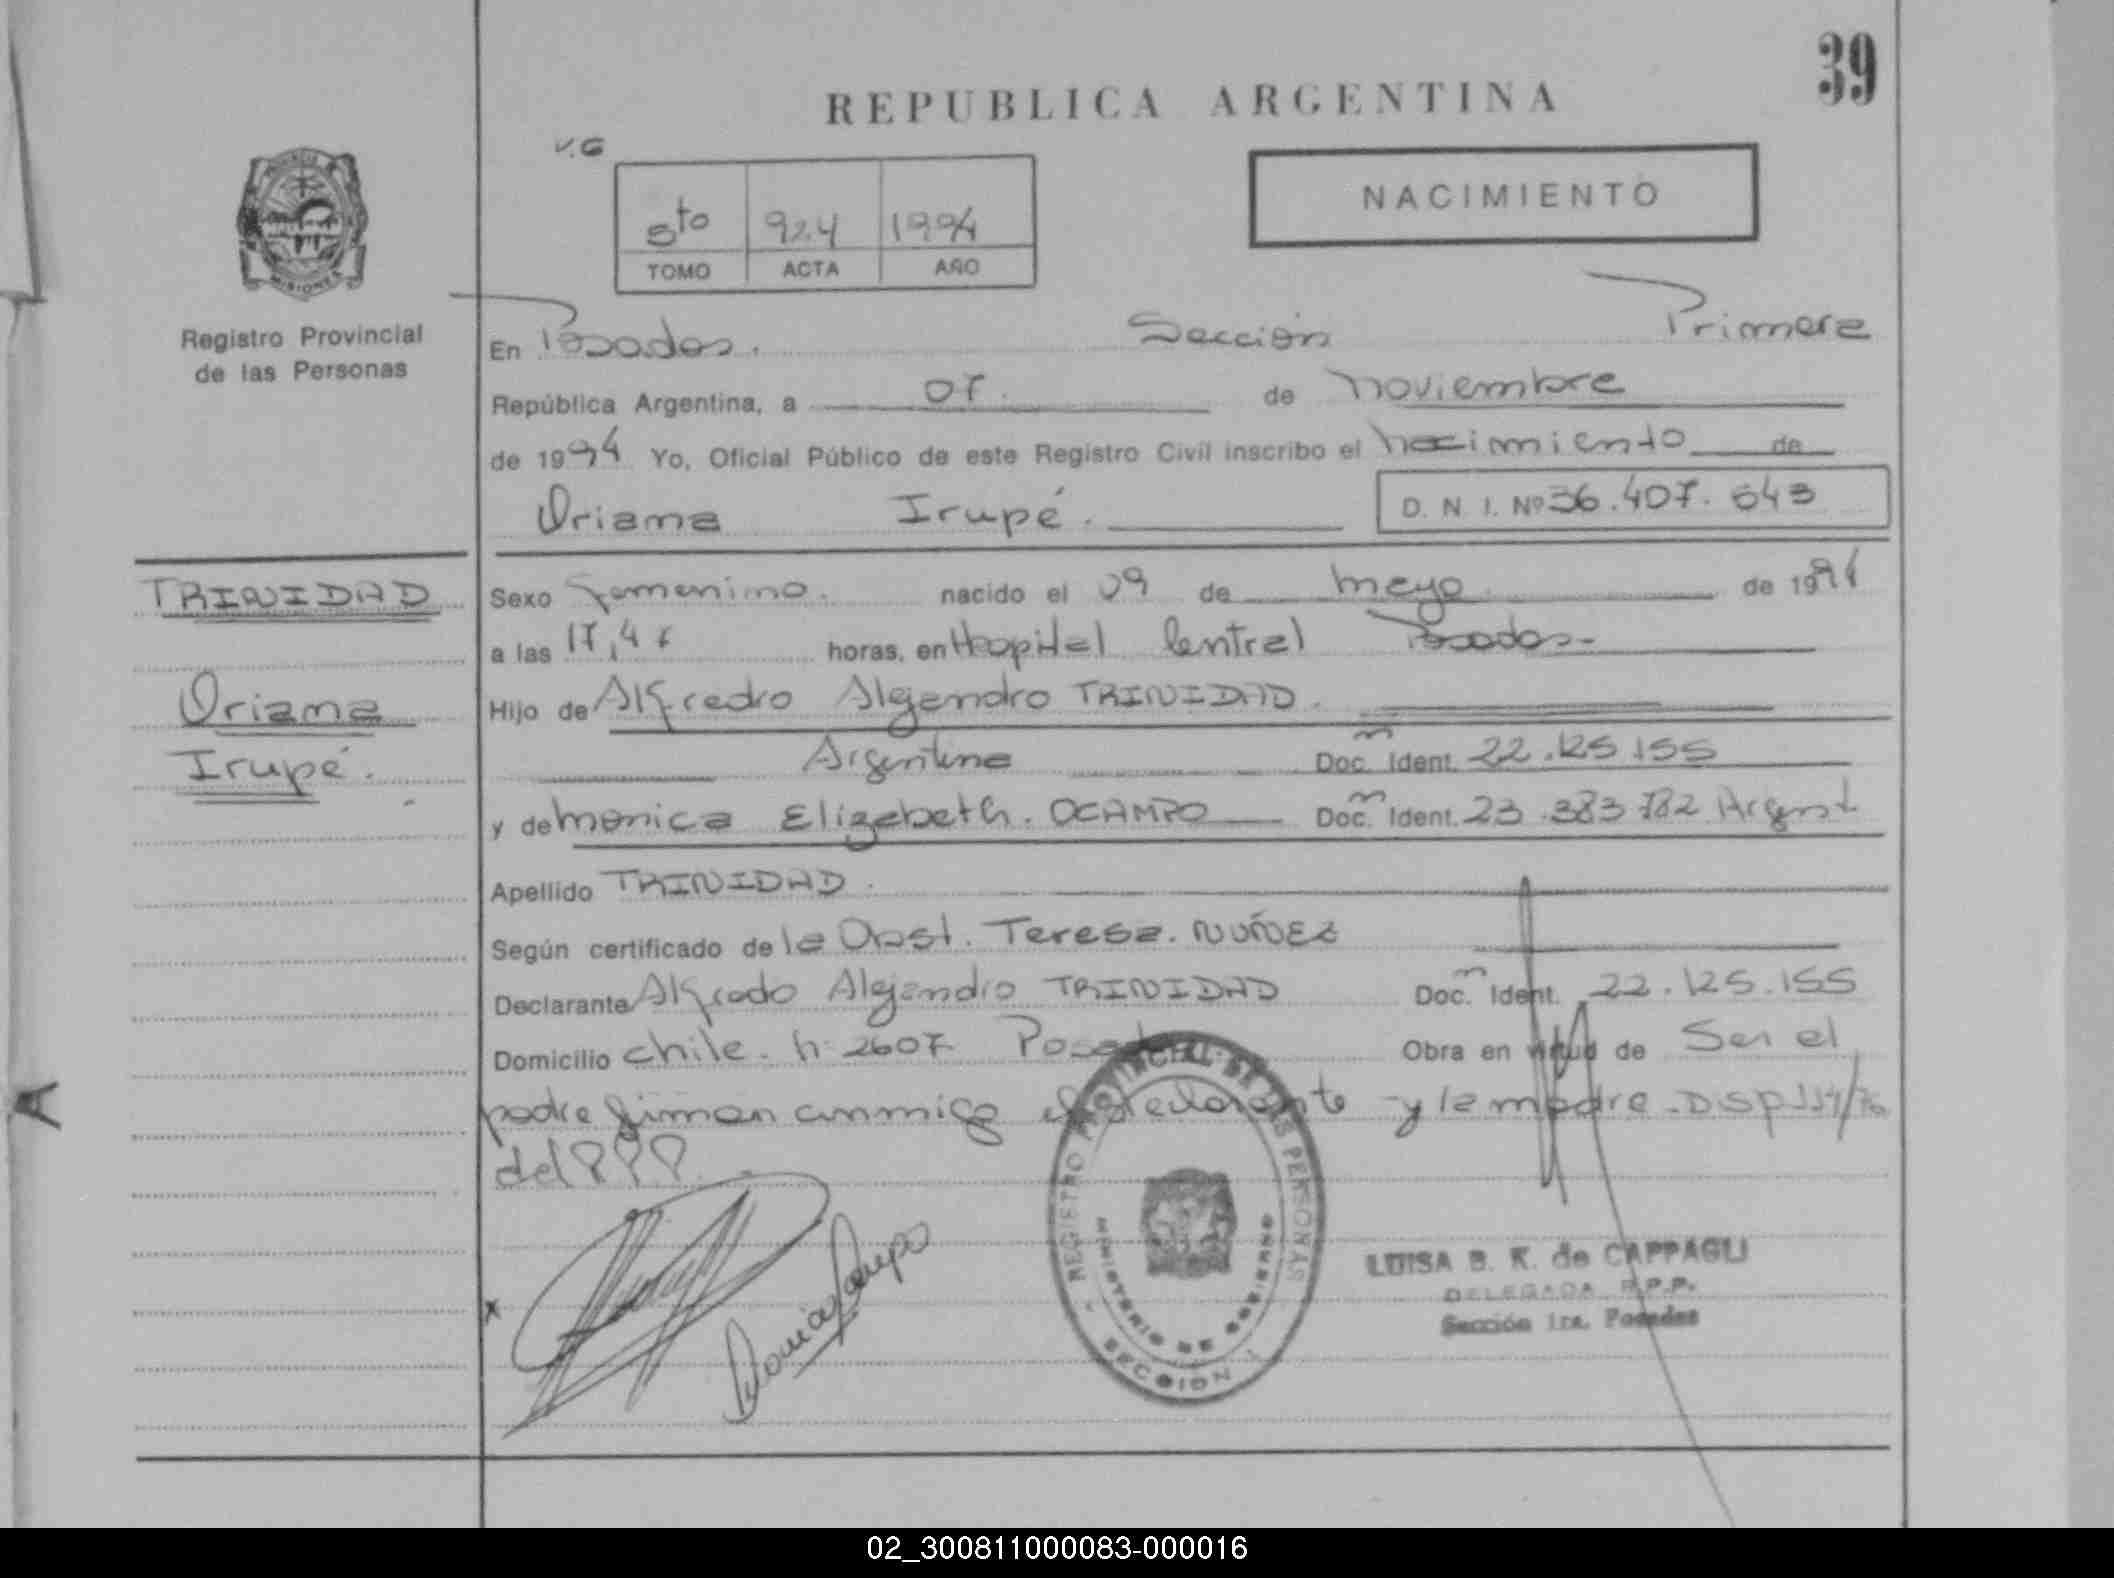 39
REPUBLICA ARGENTINA
V.G
NACIMIENTO
5to 924 1994
TOMO ACTA AÑO
MISIONES
Registro Provincial
de las Personas
En Posadas. Sección Primera
República Argentina, a 07. de noviembre
de 1994 Yo, Oficial Público de este Registro Civil inscribo el nacimiento de
Oriana Irupé. D. N. I. Nº 36.407.643
TRINIDAD
Oriana
Irupé.
Sexo femenino. nacido el 09 de mayo de 1994
a las 17,47 horas, en Hospital Central Posadas-
Hijo de Alfredo Alejandro TRINIDAD.
Argentina Doc. Ident. 22.125.155
y de monica Elizabeth. OCAMPO Doc. Ident. 23.383.782 Argent
Apellido TRINIDAD.
Según certificado de la Obst. Teresa. NUÑEZ
Declarante Alfredo Alejandro TRINIDAD Doc. Ident. 22.125.155
Domicilio chile. n 2607 Posadas Obra en virtud de Ser el
padre firman conmigo el declarante y la madre. DISP
del
REGISTRO PROVINCIAL DE LAS PERSONAS
MINISTERIO DE GOBIERNO
SECCION 1
Monica Ocampo
LUISA B. K. de CAPPAGLI
DELEGADA R.P.P.
Sección 1ra. Posadas
A
02_300811000083-000016